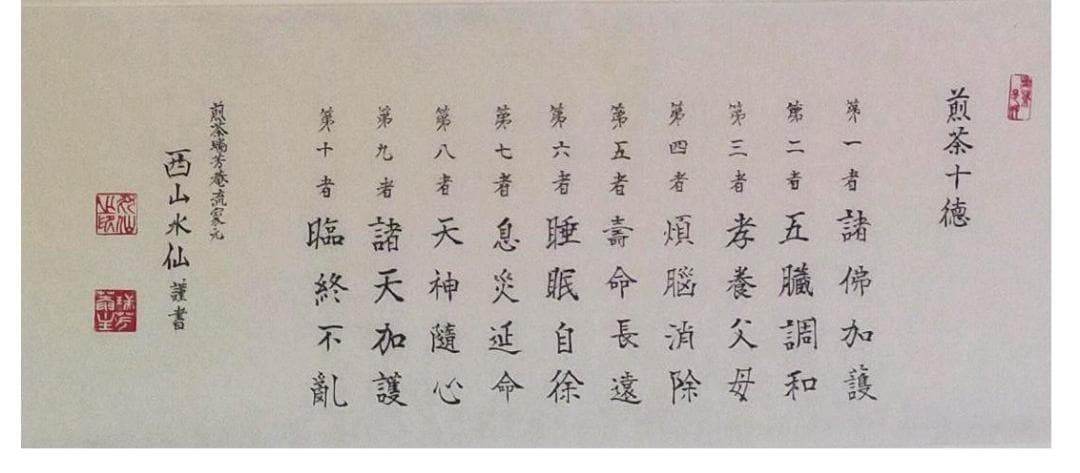 煎茶十徳
第一者諸佛加護
第二者五臓調和
第三者孝養父母
第四者煩腦消除
第五者壽命長遠
第六者睡眠自徐
第七者息災延命
第八者天神隨心
第九者諸天加護
第十者臨終不亂
煎茶瑞芳菴流家元
西山水仙謹書